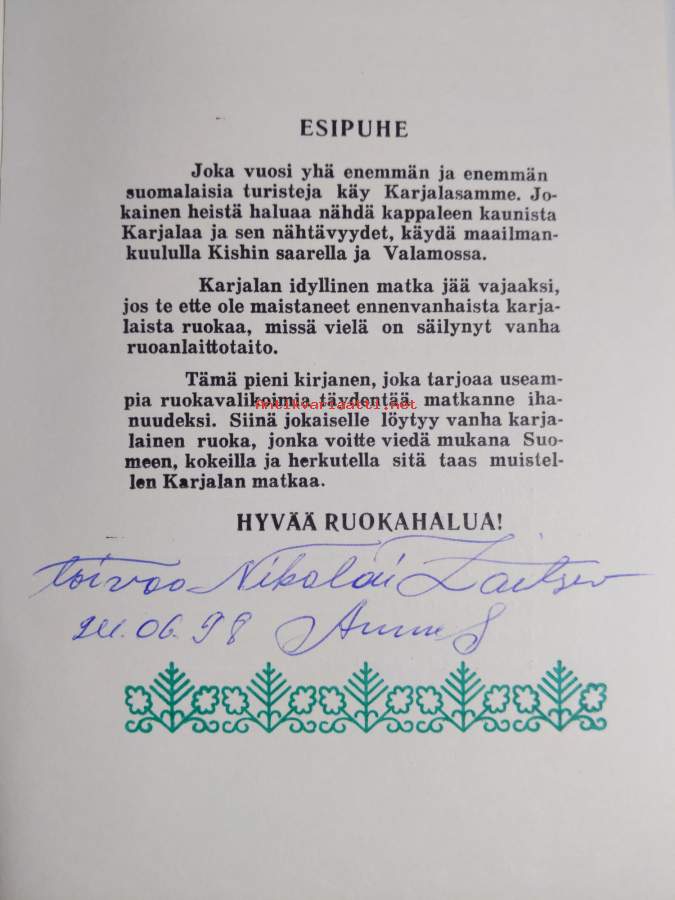 ESIPUHE
Joka vuosi yhä enemmän ja enemmän
suomalaisia turisteja käy Karjalasamme. Jo-
kainen heistä haluaa nähdä kappaleen kaunista
Karjalaa ja sen nähtävyydet, käydä maailman-
kuululla Kishin saarella ja Valamossa.
Karjalan idyllinen matka jää vajaaksi,
jos te ette ole maistaneet ennenvanhaista karja-
laista ruokaa, missä vielä on säilynyt vanha
ruoanlaittotaito.
Tämä pieni kirjanen, joka tarjoaa useam-
pia ruokavalikoimia täydentää matkanne iha-
Antikvariaatti.net
nuudeksi. Siinä jokaiselle löytyy vanha karja-
lainen ruoka, jonka voitte viedä mukana Suo-
meen, kokeilla ja herkutella sitä taas muistel-
len Karjalan matkaa.
HYVÄÄ RUOKAHALUA!
toivoo Nikolai Zaitsev
24.06.98